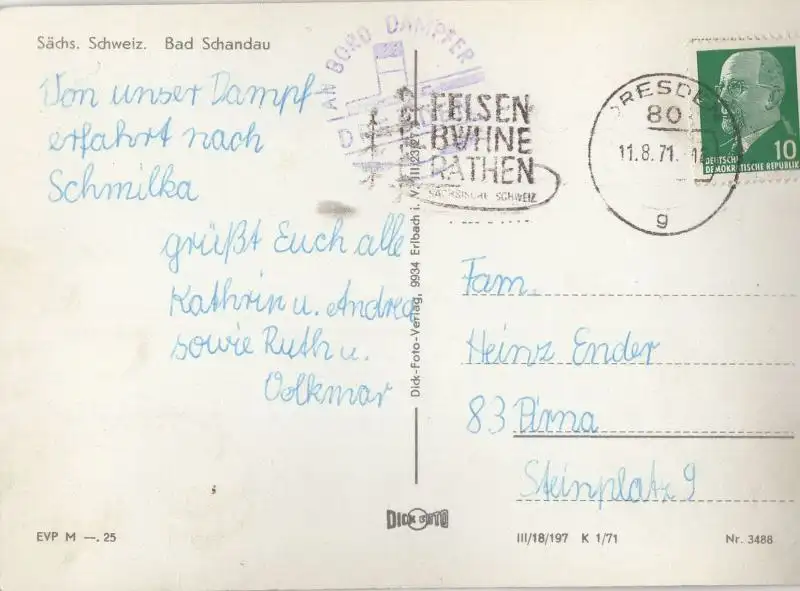 Sächs. Schweiz. Bad Schandau
Von unser Dampf-
erfahrt nach
Schmilka
grüßt Euch alle
Kathrin u. Andrea
sowie Ruth u.
Volkmar
EVP M —.25
AN BORD DAMPFER
FELSEN
BÜHNE
RATHEN
SÄCHSISCHE SCHWEIZ
DRESDEN
80
11.8.71
g
10
DEUTSCHE
DEMOKRATISCHE REPUBLIK
Dick-Foto-Verlag, 9934 Erlbach i. V. III/23/27
Fam.
Heinz Ender
83 Pirna
Steinplatz 9
DICK FOTO
III/18/197 K 1/71
Nr. 3488